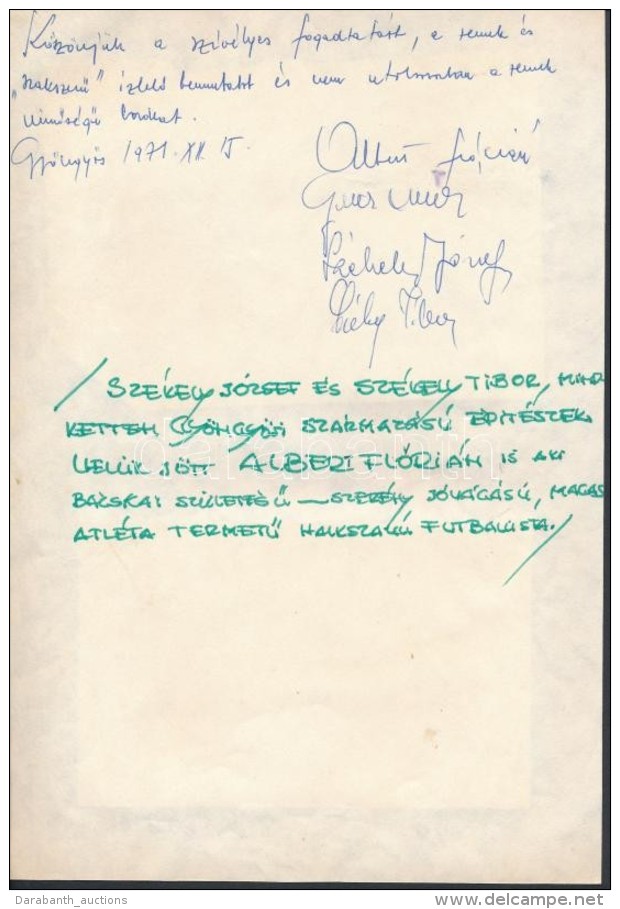 Köszönjük a szívélyes fogadtatást, a remek és
„szakszerű” ízlelő bemutatót és nem utolsósorban a remek
minőségű borokat.
Gyöngyös 1971. XII. 15
Albert Flórián
Székely József
Székely Tibor
SZÉKELY JÓZSEF ÉS SZÉKELY TIBOR, MIND
KETTEN GYÖNGYÖSI SZÁRMAZÁSÚ ÉPÍTÉSZEK
VELÜK JÖTT ALBERT FLÓRIÁN IS AKI
BÁCSKAI SZÜLETÉSŰ – SZERÉNY JÓVÁGÁSÚ, MAGAS
ATLÉTA TERMETŰ HALKSZAVÚ FUTBALLISTA.
darabanth
Darabanth_auctions
delcampe.net